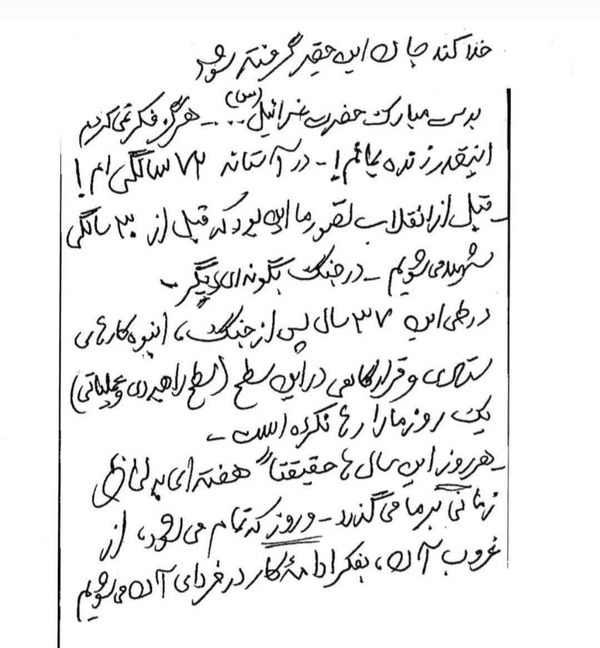 خدا کند جان این حقیر گرفته شود
بدست مبارک حضرت عزرائیل (س) ... - هرگز فکر نمی‌کردم
اینقدر زنده بمانم! - در آستانه ۷۳ سالگی ام!
- قبل از انقلاب تصور ما این بود که قبل از ۳۰ سالگی
شهید می‌شویم - در جنگ بگونه‌ای دیگر -
در طی این ۳۷ سال پس از جنگ، انبوه کارهای
ستادی و قرارگاهی در این سطح (سطح راهبردی و عملیاتی)
یک روز ما را رها نکرده است -
- هر روز این سال ها حقیقتاً هفته‌ای به لحاظ
زمانی بر ما می‌گذرد - و روز که تمام می‌شود، از
غروب آن، بفکر ادامهٔ کار در فردای آن می‌شویم